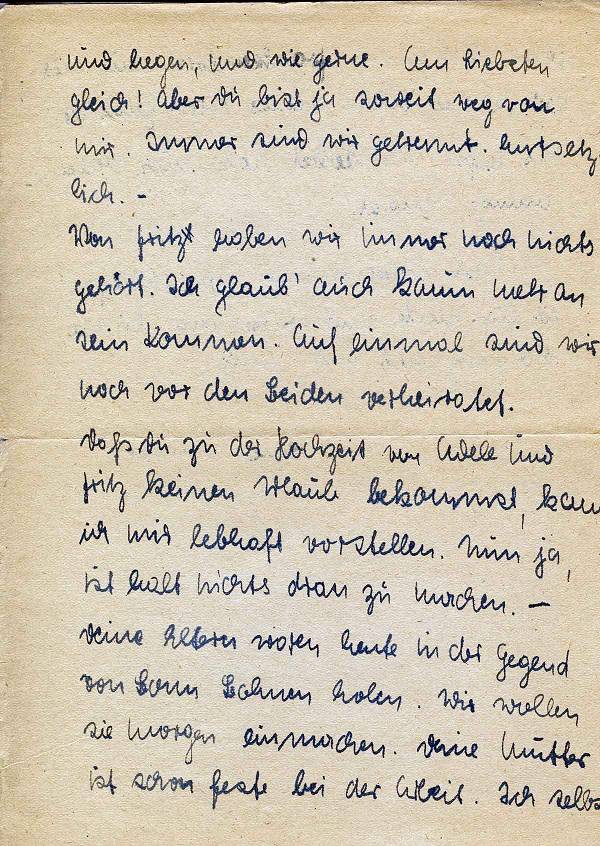 und hegen, und wie gerne. Am Liebsten
gleich! Aber du bist ja soweit weg von
mir. Immer sind wir getrennt. Entsetz
lich. -
Von Fritz haben wir immer noch nichts
gehört. Ich glaub' auch kaum mehr an
sein Kommen. Auf einmal sind wir
noch vor den Beiden verheiratet.
Daß du zu der Hochzeit von Adele und
Fritz keinen Urlaub bekommst, kann
ich mir lebhaft vorstellen. Nun ja,
ist halt nichts dran zu machen. —
Deine Eltern waren heute in der Gegend
von Bonn Bohnen holen. Wir wollen
sie morgen einmachen. Deine Mutter
ist schon feste bei der Arbeit. Ich selbs